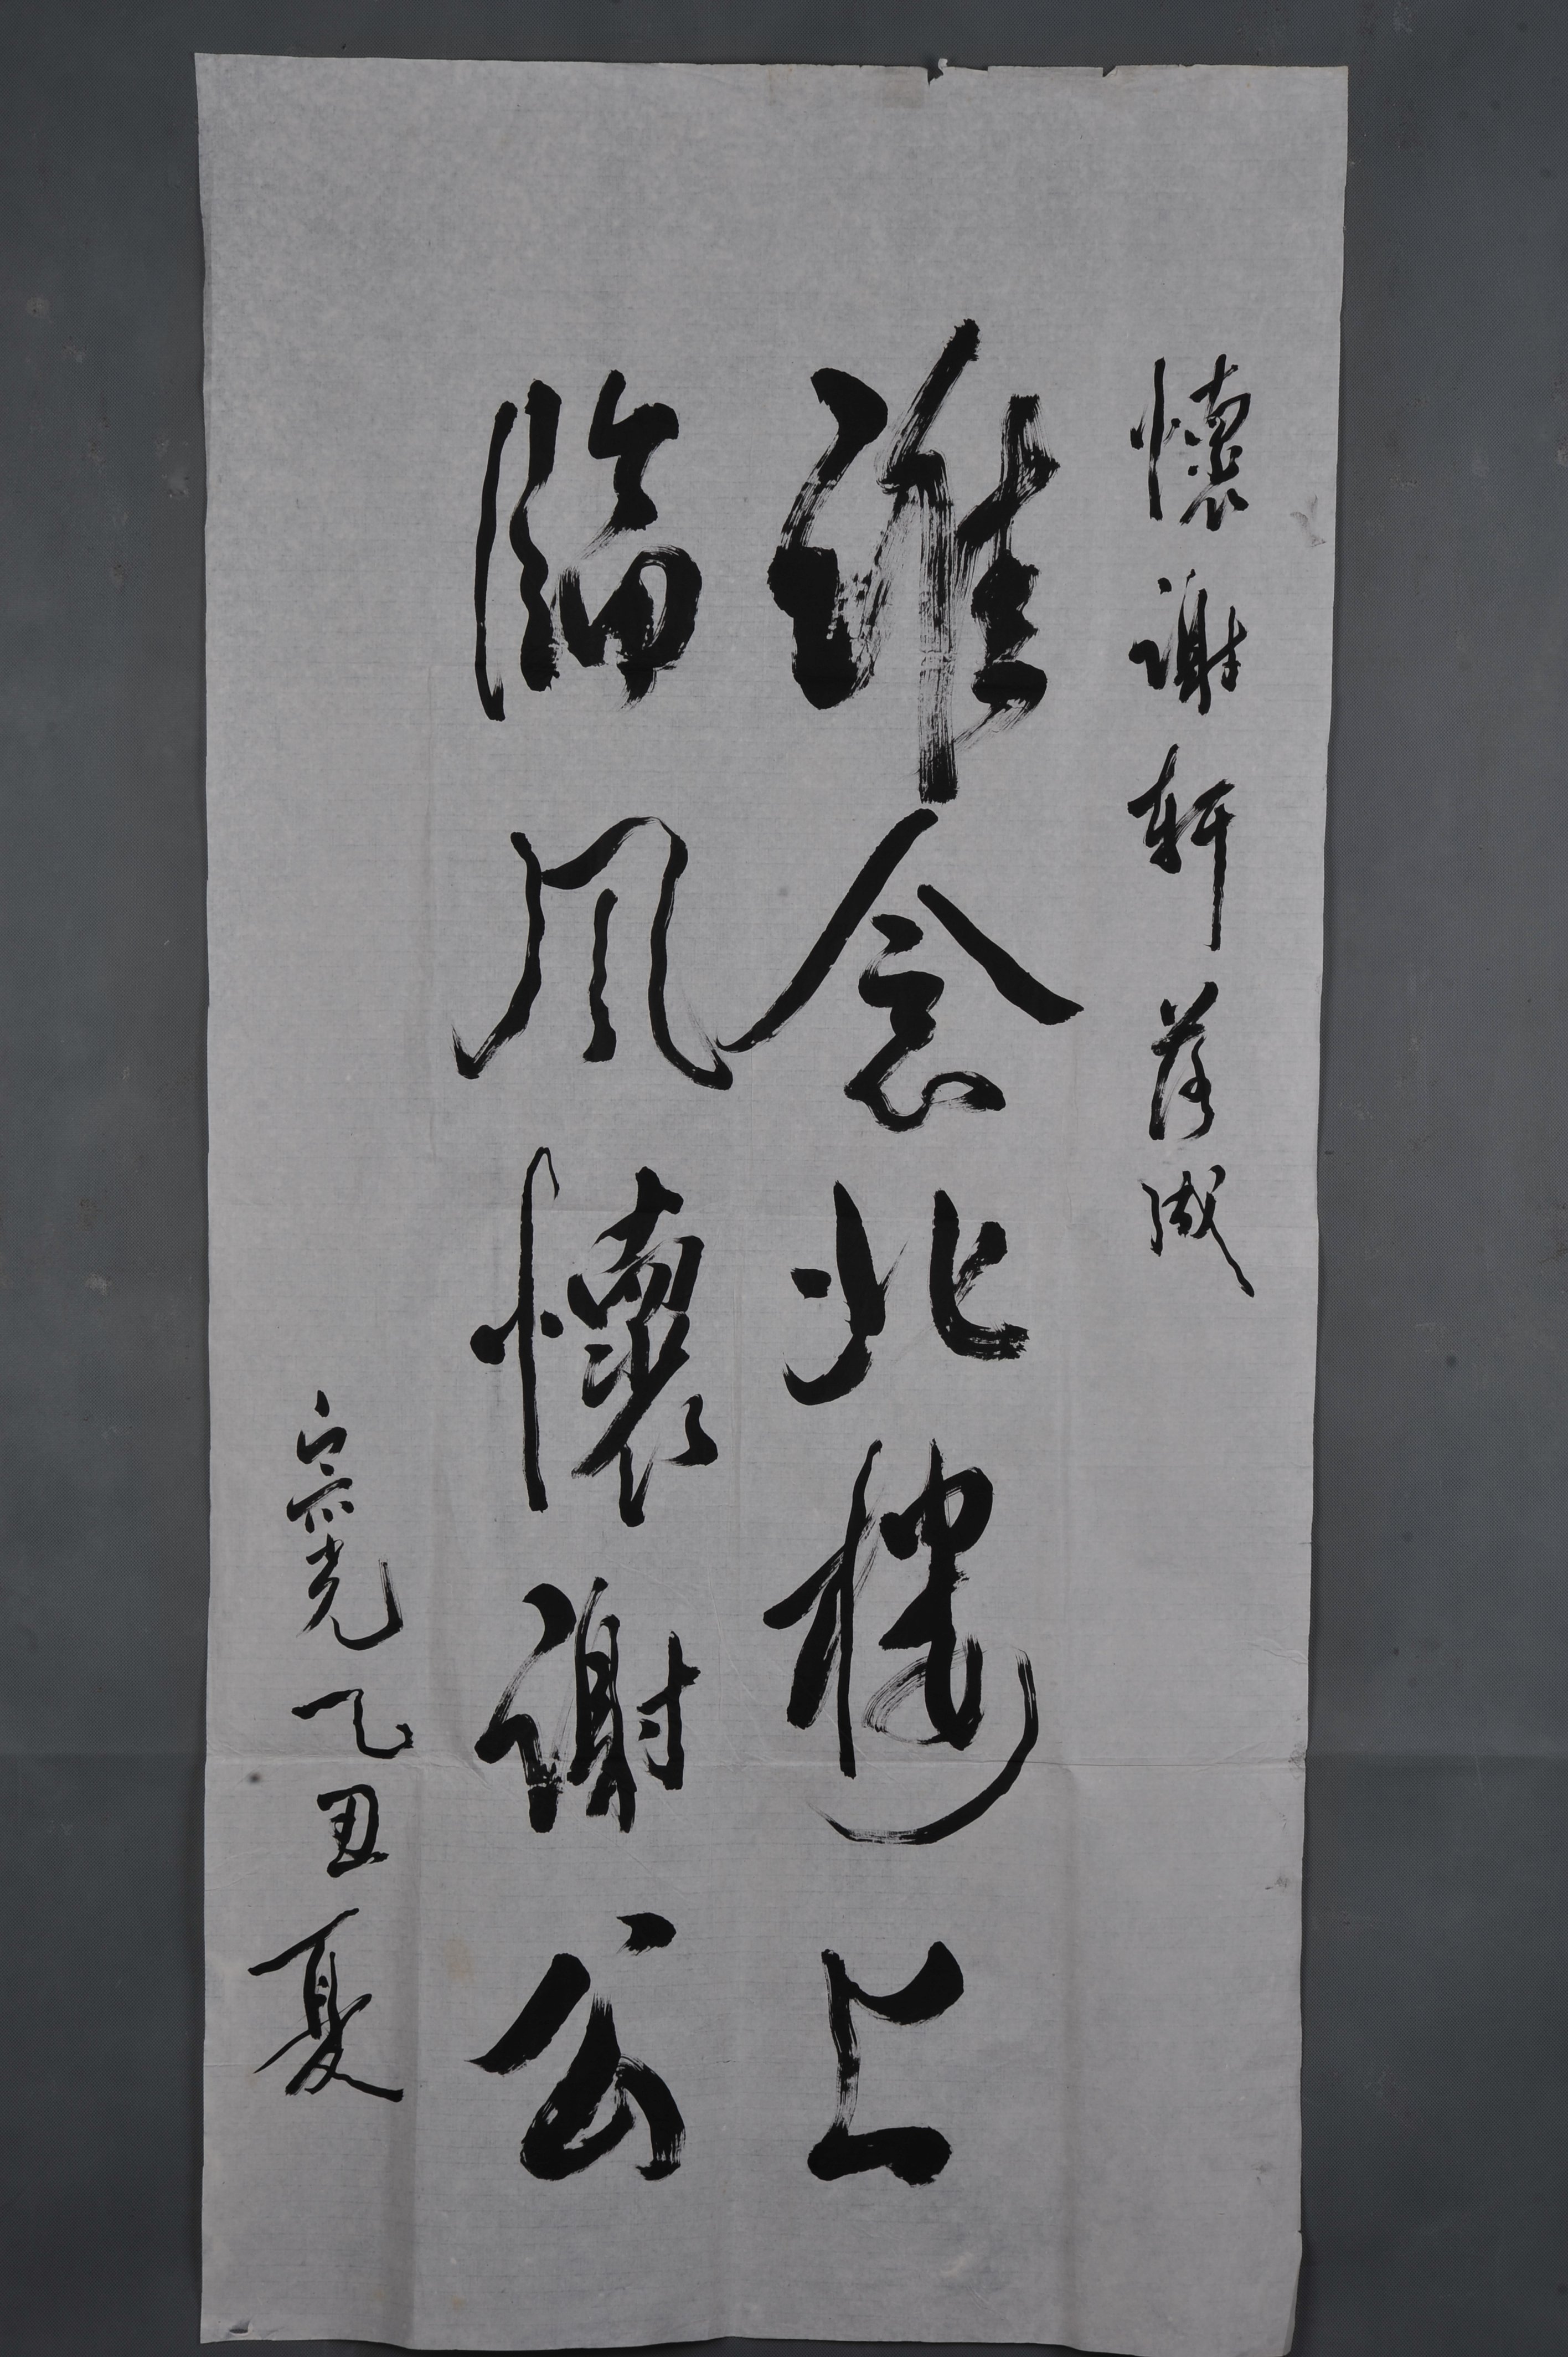 懷謝軒落成
誰念北樓上
臨風懷謝公
宗光乙丑夏